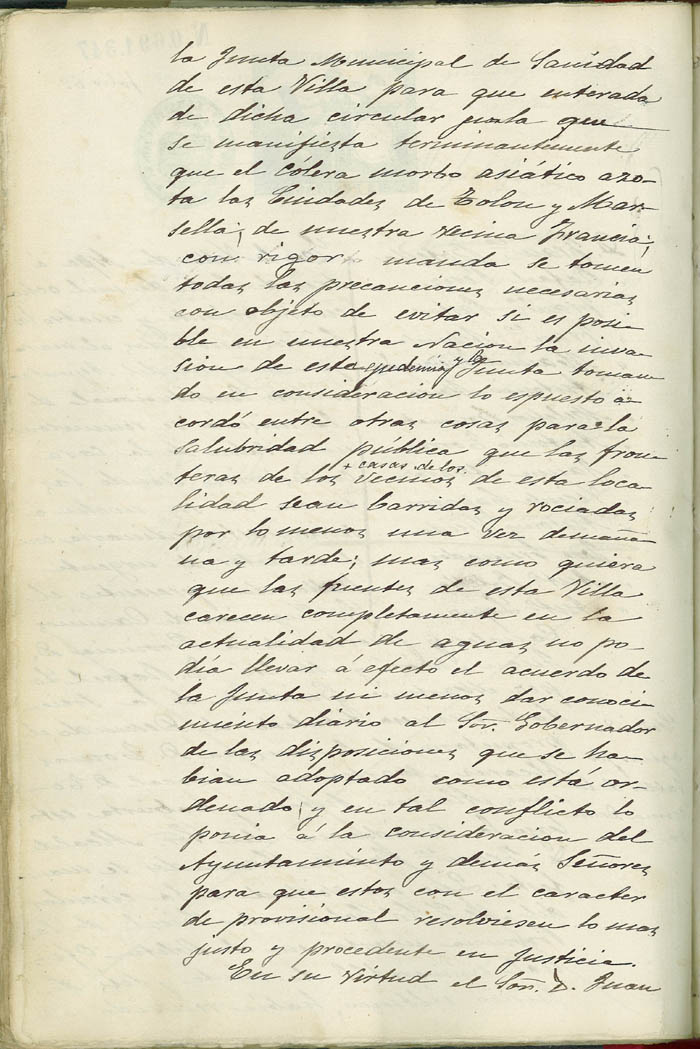 la Junta Municipal de Sanidad
de esta Villa para que enterada
de dicha circular por la que
se manifiesta terminantemente
que el cólera morbo asiático azo-
ta las Ciudades de Tolon y Mar-
sella, de nuestra vecina Francia;
con rigor manda se tomen
todas las precauciones necesarias
con objeto de evitar si es posi-
ble en nuestra Nacion la inva-
sion de esta epidemia y la Junta toman-
do en consideración lo espuesto a-
cordó entre otras cosas para la
salubridad pública que las fron-
teras de los
+ casas de los
vecinos de esta loca-
lidad sean barridas y rociadas
por lo menos una vez demaña-
na y tarde; mas como quiera
que las fuentes de esta Villa
carecen completamente en la
actualidad de aguas no po-
día llevar á efecto el acuerdo de
la Junta ni menos dar conoci-
miento diario al Sor. Gobernador
de las disposiciones que se ha-
bian adoptado como está or-
denado, y en tal conflicto lo
ponia á la consideracion del
Ayuntamiento y demás Señores
para que estos con el caracter
de provisional resolviesen lo mas
justo y procedente en Justicia.
En su virtud el Sor. D. Juan